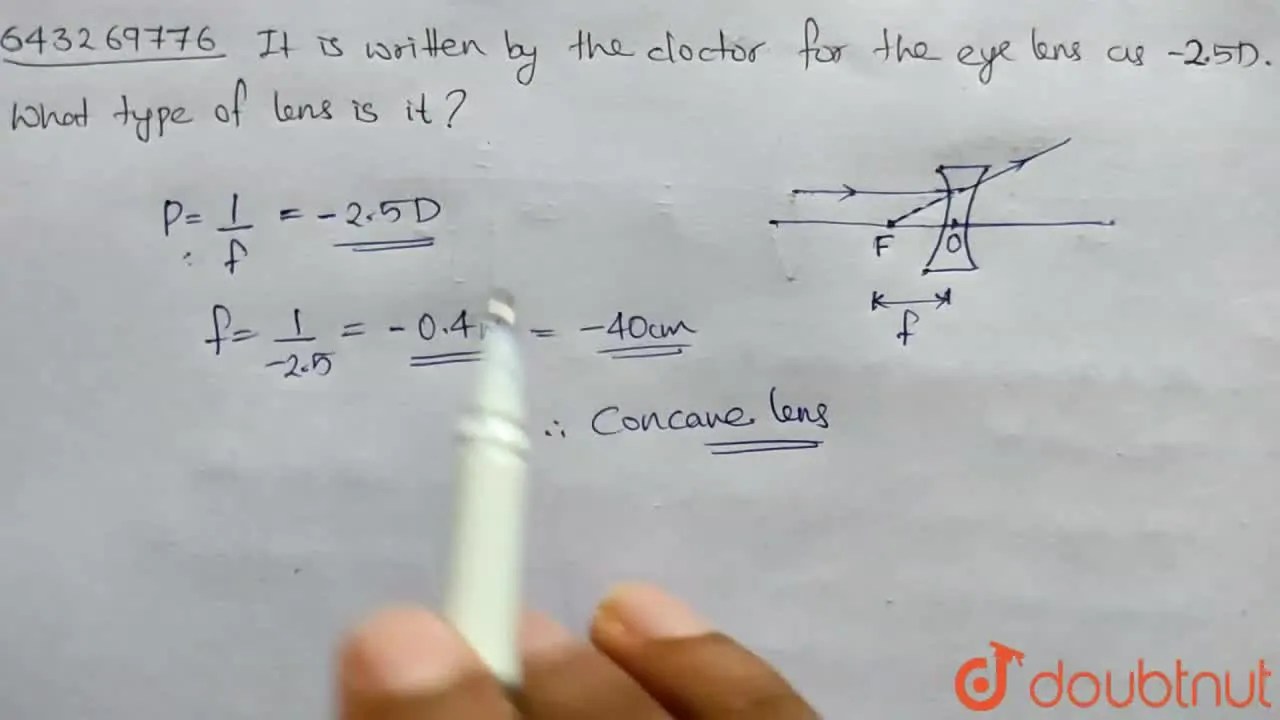 643269776 It is written by the doctor for the eye lens as -2.5D.
What type of lens is it?
P = 1/f = -2.5D
∴ f = 1/-2.5 = -0.4 = -40cm
∴ Concave lens
F O
f
doubtnut